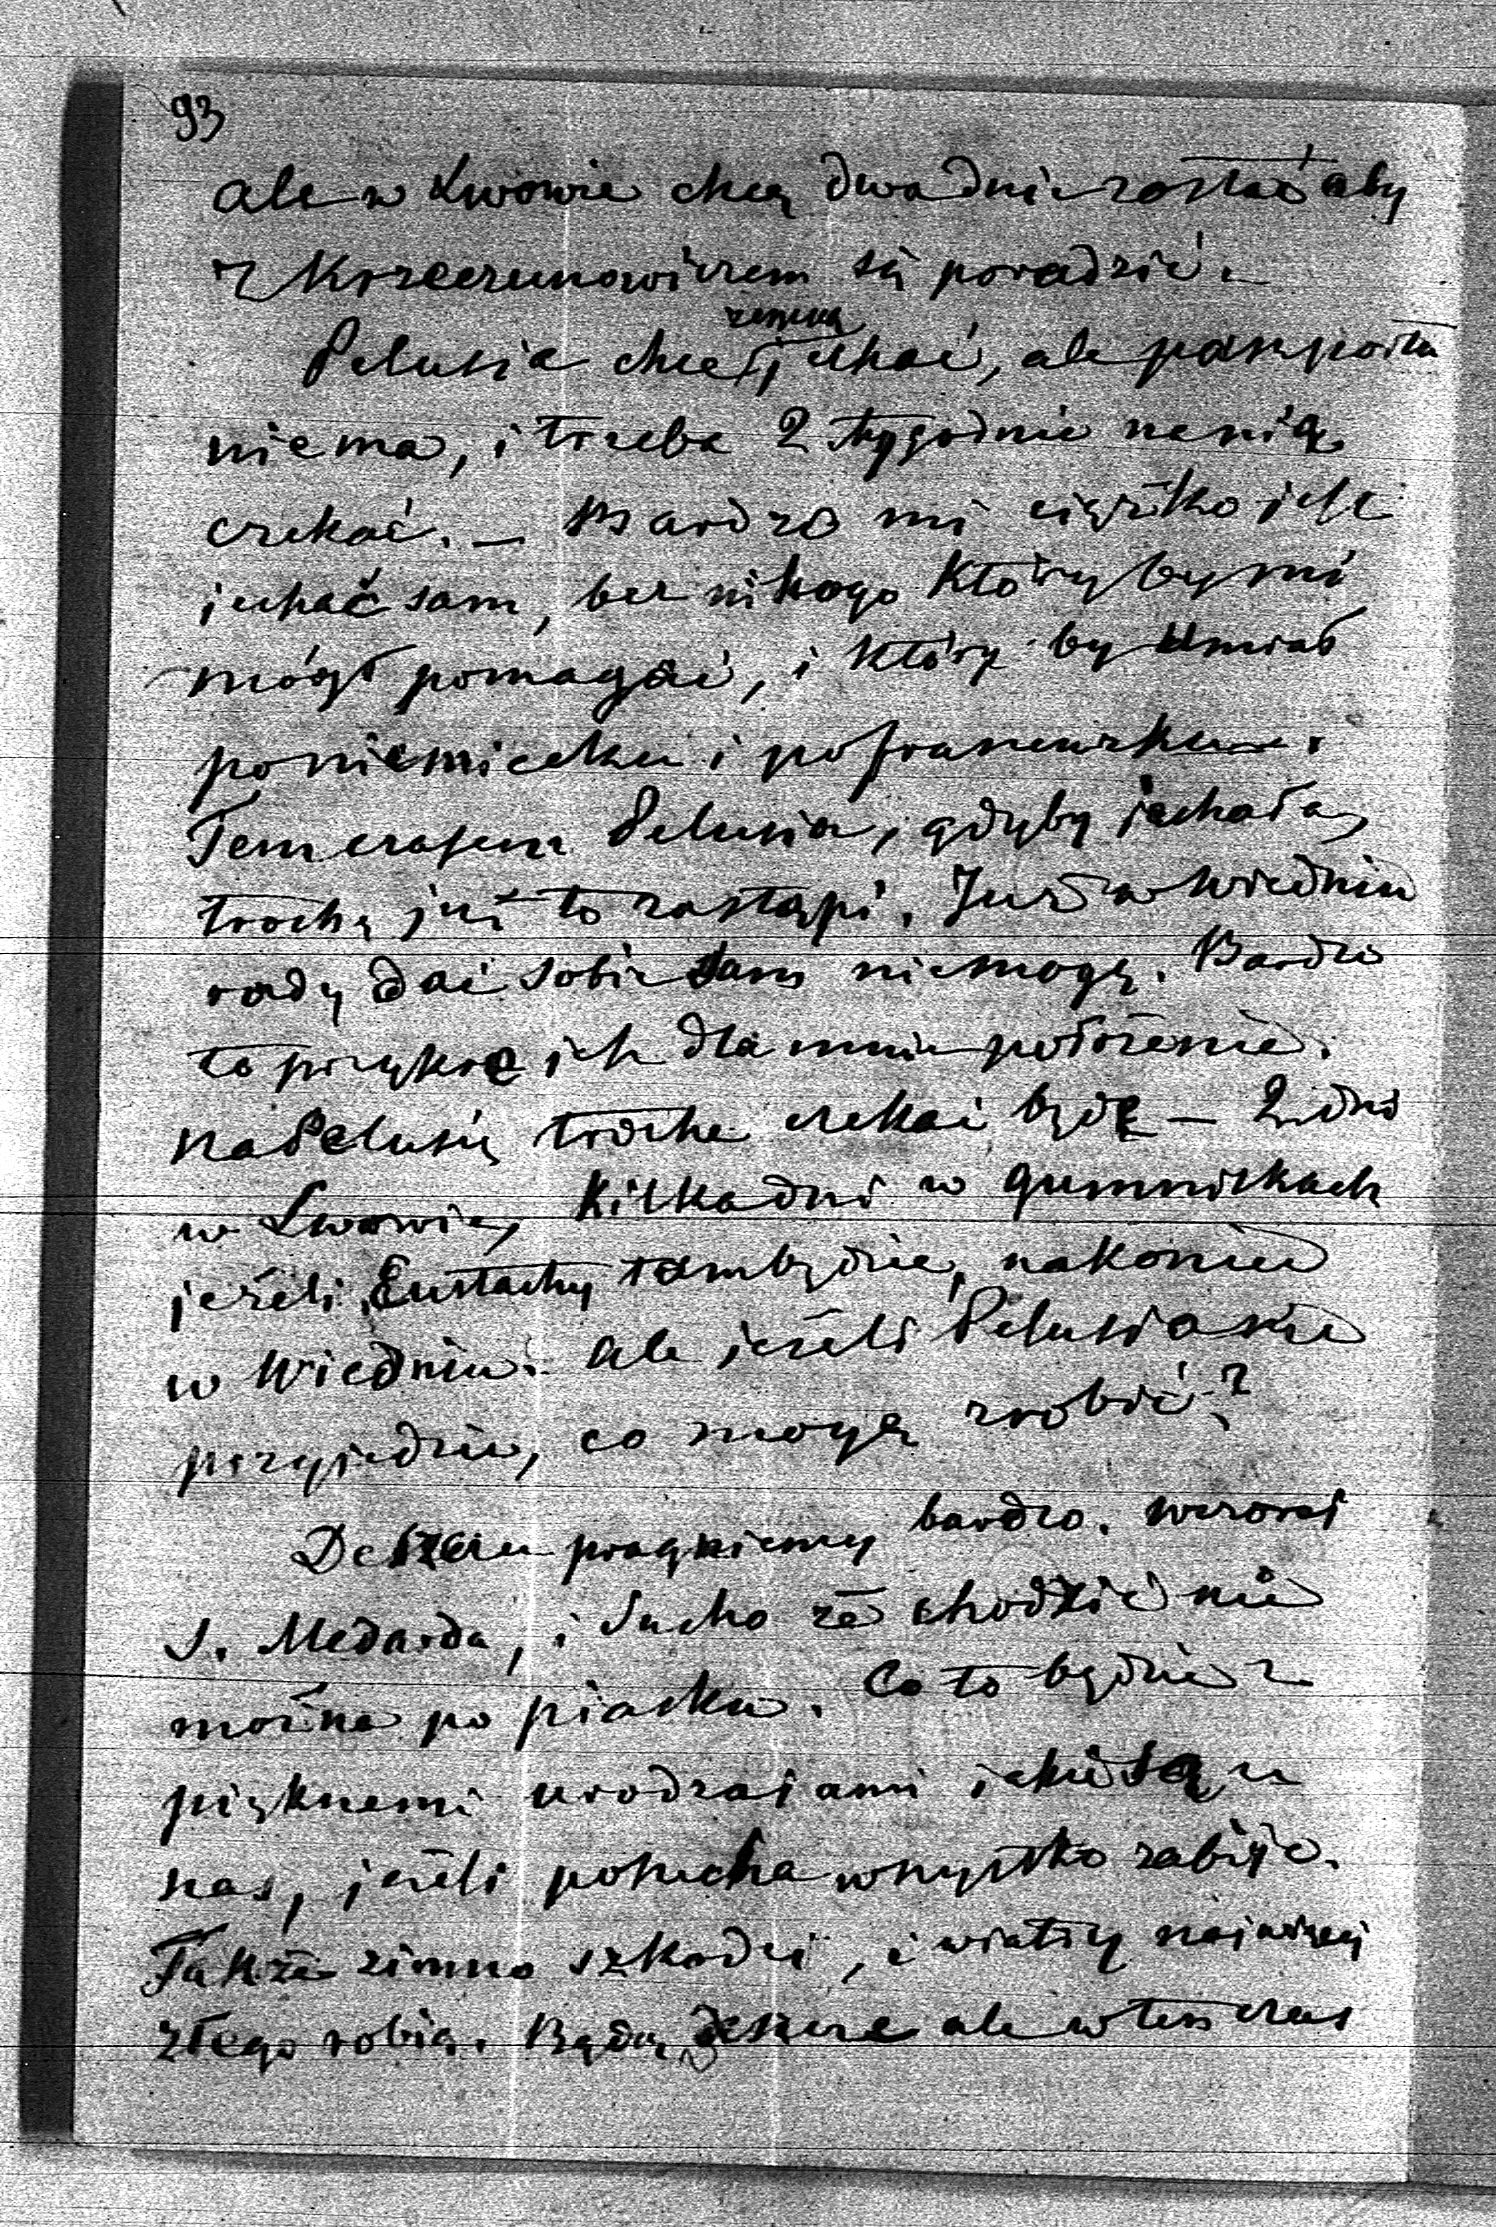 93
ale w Lwowie chcę dwa dni zostać aby
z Krzeczunowiczem się poradzić.
Pelusia chce zemną jechać, ale paszportu
niema, i trzeba 2 tygodnie nanią
czekać. — Bardzo mi ciężko jest
jechać sam, bez nikogo któryby mi
mógł pomagać, i który by umiał
poniemiecku i pofrancuzku.
Temczasem Pelusia, gdyby jechała,
trochę już to zastąpi. Już w Wiedniu
rady dać sobie sam niemogę. Bardzo
to przykre jest dla mnie położenie.
na Pelusię trochę czekać będę — 2 dni
w Lwowie, kilka dni w Gumniskach
jeżeli Eustachy tam będzie, nakoniec
w Wiedniu. ale jeżeli Pelusia nie
przyjedzie, co mogę zrobić?
Deszczu pragniemy bardzo. wczoraj
S. Medarda, i sucho że chodzić nie
można po piasku. Co to będzie z
pięknemi urodzajami jakie są u
nas, jeżeli posucha wszystko zabije.
Także zimno szkodzi, i wiatry najwięcej
złego robią. Będą deszcze ale w ten czas